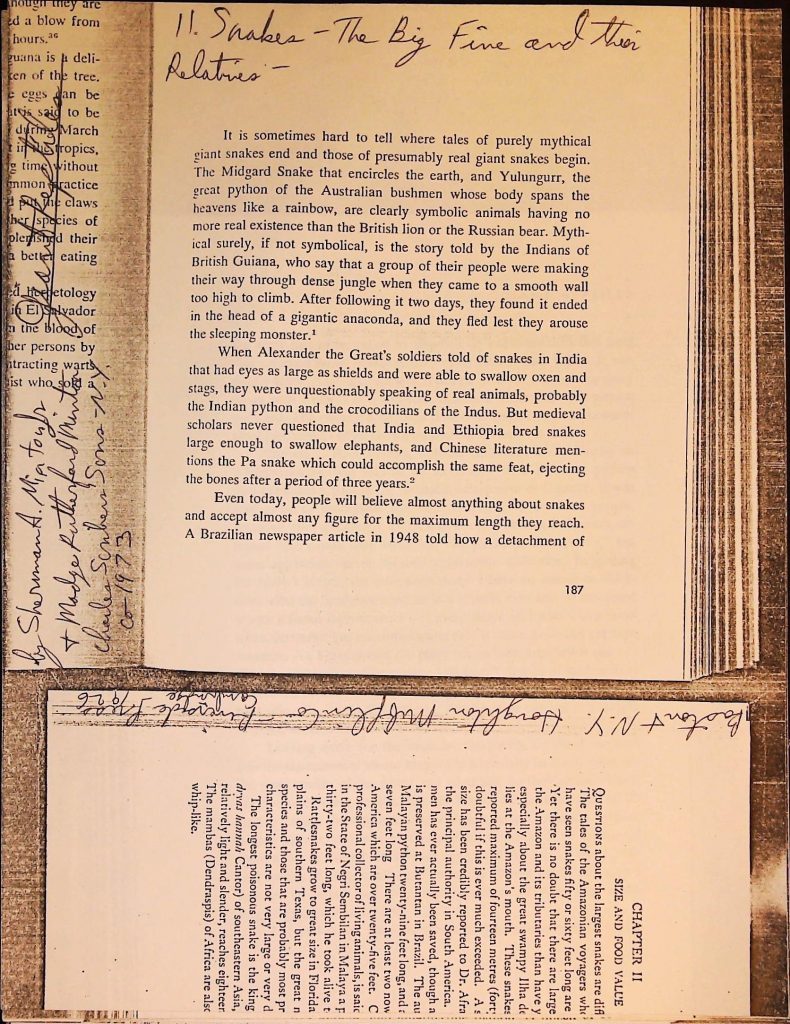 11. Snakes - The Big Five and their
Relatives -
It is sometimes hard to tell where tales of purely mythical
giant snakes end and those of presumably real giant snakes begin.
The Midgard Snake that encircles the earth, and Yulungurr, the
great python of the Australian bushmen whose body spans the
heavens like a rainbow, are clearly symbolic animals having no
more real existence than the British lion or the Russian bear. Myth-
ical surely, if not symbolical, is the story told by the Indians of
British Guiana, who say that a group of their people were making
their way through dense jungle when they came to a smooth wall
too high to climb. After following it two days, they found it ended
in the head of a gigantic anaconda, and they fled lest they arouse
the sleeping monster.¹
When Alexander the Great's soldiers told of snakes in India
that had eyes as large as shields and were able to swallow oxen and
stags, they were unquestionably speaking of real animals, probably
the Indian python and the crocodilians of the Indus. But medieval
scholars never questioned that India and Ethiopia bred snakes
large enough to swallow elephants, and Chinese literature men-
tions the Pa snake which could accomplish the same feat, ejecting
the bones after a period of three years.²
Even today, people will believe almost anything about snakes
and accept almost any figure for the maximum length they reach.
A Brazilian newspaper article in 1948 told how a detachment of
187
though they are
ed a blow from
hours.³⁶
guana is a deli-
ken of the tree.
e eggs can be
it is said to be
during March
in the tropics,
g time without
mmon practice
d put the claws
her species of
plenished their
a better eating
ed herpetology
in El Salvador
n the blood of
her persons by
ntracting warts
ist who told
Giant Reptiles
by Sherman A. Minton Jr.
+ Madge Rutherford Minton
Charles Scribner's Sons - N.Y.
co - 1973
Boston + N.Y. Houghton Mifflin Co - Riverside Press
Cambridge
1926
CHAPTER II
SIZE AND FOOD VALUE
QUESTIONS about the largest snakes are diff
The tales of the Amazonian voyagers wh
have seen snakes fifty or sixty feet long are
Yet there is no doubt that there are large
the Amazon and its tributaries than have y
especially about the great swampy Ilha d
lies at the Amazon's mouth. These snakes
reported maximum of fourteen metres (fort
doubtful if this is ever much exceeded. A s
size has been credibly reported to Dr. Afra
the principal authority in South America.
men has ever actually been saved, though a
is preserved at Butantan in Brazil. The au
Malayan python twenty-nine feet long, and
seven feet long There are at least two now
America which are over twenty-five feet. C
professional collector of living animals, is said
in the State of Negri Sembilan in Malaya a p
thirty-two feet long, which he took alive t
Rattlesnakes grow to great size in Florida
plains of southern Texas, but the great n
species and those that are probably most pr
characteristics are not very large or very d
The longest poisonous snake is the king
dryas hannah Cantor) of southeastern Asia,
relatively light and slender, reaches eighteen
The mambas (Dendraspis) of Africa are also
whip-like.